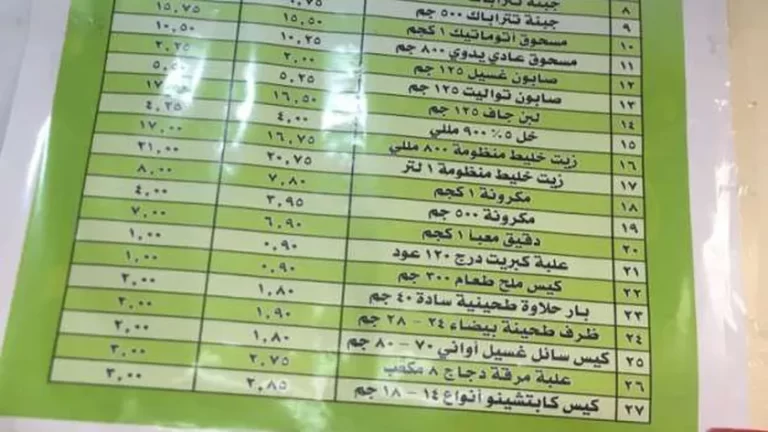 ٨ جبنة
٩ جبنة تتراباك ٥٠٠ جم
١٠ مسحوق أتوماتيك ١ كجم ١٥,٥٠ ١٥,٧٥
١١ مسحوق عادي يدوي ٨٠٠ جم ١٠,٢٥ ١٠,٥٠
١٢ صابون غسيل ١٢٥ جم ٢,٠٠ ٢,٢٥
١٣ صابون تواليت ١٢٥ جم ٥,٢٥ ٥,٥٠
١٤ لبن جاف ١٢٥ جم ١٦,٥٠ ١٧,٠٠
١٥ خل ٥% ٩٠٠ مللي ٤,٠٠ ٤,٢٥
١٦ زيت خليط منظومة ٨٠٠ مللي ١٦,٧٥ ١٧,٠٠
١٧ زيت خليط منظومة ١ لتر ٢٠,٧٥ ٢١,٠٠
١٨ مكرونة ١ كجم ٧,٨٠ ٨,٠٠
١٩ مكرونة ٥٠٠ جم ٣,٩٥ ٤,٠٠
٢٠ دقيق معبأ ١ كجم ٦,٩٠ ٧,٠٠
٢١ علبة كبريت درج ١٢٠ عود ٠,٩٠ ١,٠٠
٢٢ كيس ملح طعام ٣٠٠ جم ٠,٩٠ ١,٠٠
٢٣ بار حلاوة طحينية سادة ٤٠ جم ١,٨٠ ٢,٠٠
٢٤ ظرف طحينة بيضاء ٢٤ - ٢٨ جم ١,٩٠ ٢,٠٠
٢٥ كيس سائل غسيل أواني ٧٠ - ٨٠ جم ١,٨٠ ٢,٠٠
٢٦ علبة مرقة دجاج ٨ مكعب ٢,٧٥ ٣,٠٠
٢٧ كيس كابتشينو أنواع ١٤ - ١٨ جم ٢,٨٥ ٣,٠٠